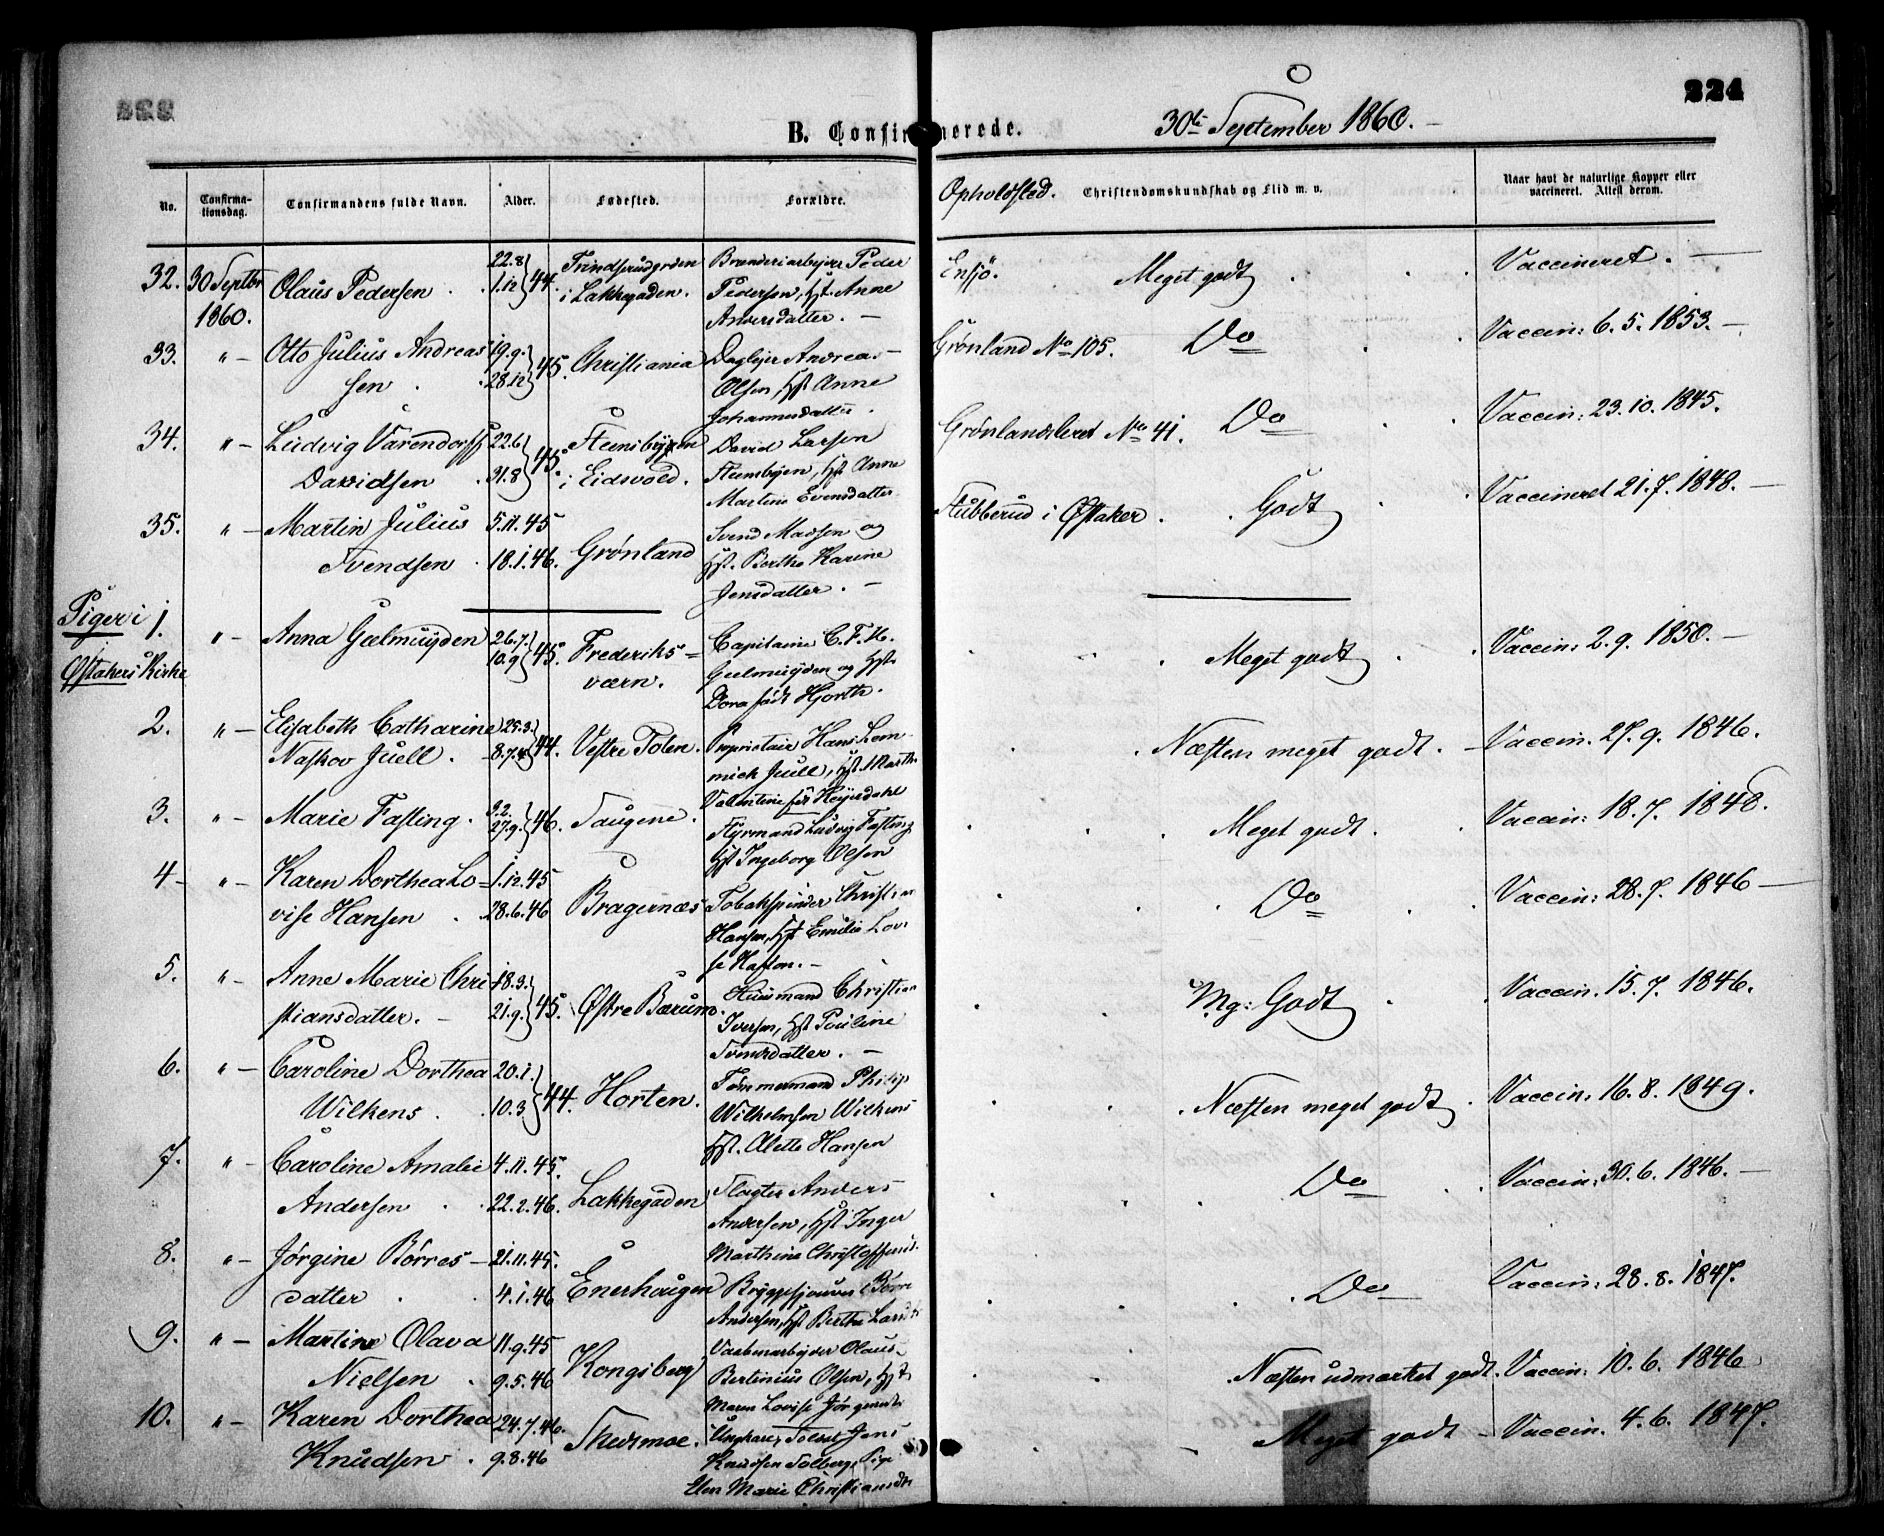 224
B. Confirmerede.
30te September 1860. —
No. Confirmationsdag. Confirmandens fulde Navn. Alder. Fødested. Forældre. Opholdsted. Christendomskundskab og Flid m. v. Naar havt de naturlige Kopper eller vaccineret. Attest derom.
32. 30 Septbr 1860. Olaus Pedersen 22.8 1.12 } 44. i Lakkegaden. Peder Pedersen, Hst. Anne Andersdatter. — Ensjö. Meget godt Vaccineret. —
33. " — Otto Julius Andreassen 19.9. 28.12 } 45. Christiania Andreas Olsen, Hst Anne Johannesdatter. Grønland No 105. Do Vaccin: 6. 5. 1853. —
34. " — Ludvig Varendorff Davidsen 22.6 31.8 } 45. i Eidsvold. David Larsen Hst Anne Martine Evensdatter Grønlandsleret No 41. Do Vaccin: 23. 10. 1845.
35. " — Martin Julius Svendsen 5.11.45 18.1.46. Grønland Svend Madsen og Hst. Berthe Karine Jensdatter. — Stubberud i Østaker. Godt Vaccineret 21. 7. 1848. —
Piger i Østakers Kirke
1. " — Anna Gelmuyden 26.7. 10.9 } 45. Frederiksværn. Capitaine C. F. H. Gelmuyden og Hst. Dora født Hjorth. Meget godt Vaccin: 2. 9. 1850. —
2. " — Elisabeth Catharine Naskov Juell. 25.3. 8.7. } 44. Vestre Toten. Proprietair Hans Juell, Hst. Valentine født Heyerdahl Næsten meget godt. Vaccin. 27. 9. 1846.
3. " — Marie Fasting. 9.2. 27.9. } 46. Saugene. Styrmand Ludvig Fasting Hst Ingeborg Olsen Meget godt. Vaccin: 18. 7. 1848.
4 — " — Karen Dorthea Lovise Hansen 1.12.45 28.6.46 Bragernæs Tobakspinder Christian Hansen, Hst Emilie Lovise Do Vaccin: 28. 7. 1846 —
5. " — Anne Marie Christiansdatter. — 18.3. 21.9. } 45. Østre Bærum. Huusmand Christian Iversen, Hst Pauline Svendsdatter. — Mg: Godt Vaccin. 15. 7. 1846.
6. " — Caroline Dorthea Wilkens. 20.1. 10.3 } 44. Horten. Tømmermand Philip Wilhelmsen Wilkens Hst. Alette Hansen Næsten meget godt Vaccin: 16. 8. 1849.
7. " — Caroline Amalie Andersen 4.11.45. 22.2.46. Lakkegaden Slagter Anders Andersen, Hst Inger Marthine Do Vaccin: 30. 6. 1846. —
8. " — Jørgine Børresdatter 21.11.45. 4.1.46 Enerhaugen Børre Andersen, Hst Berthe Do Vaccin: 28. 8. 1847.
9. " — Martine Olava Nielsen 11.9.45 9.5.46 Kongsberg Olaus Bertinius Olsen, Hst Maren Lovise Næsten udmærket godt. Vaccin: 10. 6. 1846
10. " — Karen Dorthea Knudsen 24.7.46. 9.8.46 Skedsmoe. Ungkarl, Jens Knudsen Solberg, Pige Marie Meget godt — Vaccin. 4. 6. 1847.